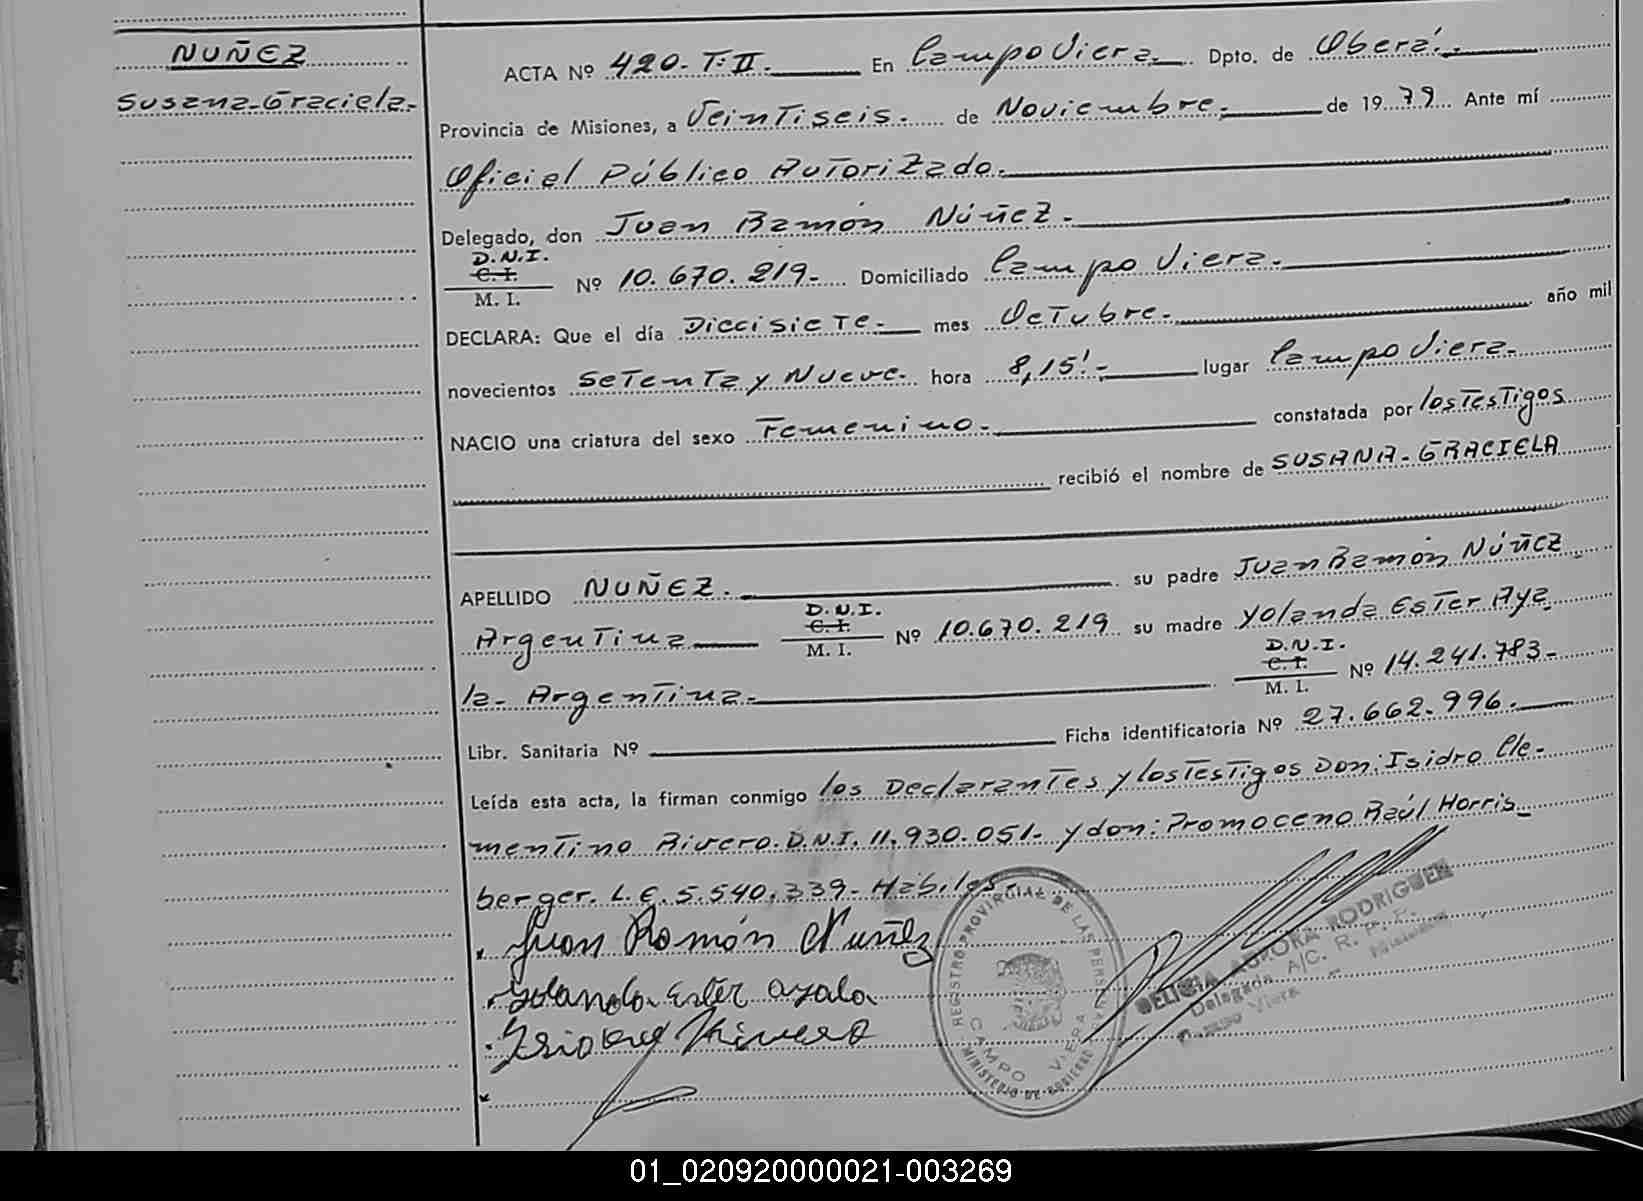 NUÑEZ
Susana-Graciela-
ACTA Nº 420-T:II- En Campo Viera- Dpto. de Oberá-
Provincia de Misiones, a Veintiseis- de Noviembre- de 1979 Ante mí
Oficial Público Autorizado-
Delegado, don Juan Ramón Núñez-
D.N.I.
C. I.
M. I.
Nº 10.670.219- Domiciliado Campo Viera-
DECLARA: Que el día Diecisiete- mes Octubre- año mil
novecientos Setenta y Nueve- hora 8,15'- lugar Campo Viera-
NACIO una criatura del sexo Femenino- constatada por los Testigos
recibió el nombre de SUSANA-GRACIELA
APELLIDO NUÑEZ- su padre Juan Ramón Núñez
Argentina D.N.I. C. I. M. I. Nº 10.670.219 su madre Yolanda Ester Aya
la- Argentina- D.N.I. C. I. M. I. Nº 14.241.783-
Libr. Sanitaria Nº Ficha identificatoria Nº 27.662.996-
Leída esta acta, la firman conmigo los Declarantes y los Testigos Don: Isidro Cle-
mentino Rivero. D.N.I. 11.930.051- y don: Promoceno Raúl Horris
berger. L.E. 5.540.339- Habiles-
Juan Ramón Nuñez
Yolanda Ester ayala
Rivero
REGISTRO PROVINCIAL DE LAS PERSONAS
CAMPO VIERA
MINISTERIO DE GOBIERNO
DELICIA AURORA RODRIGUEZ
Delegada A/C. R. P. P.
Campo Viera - Misiones
01_020920000021-003269